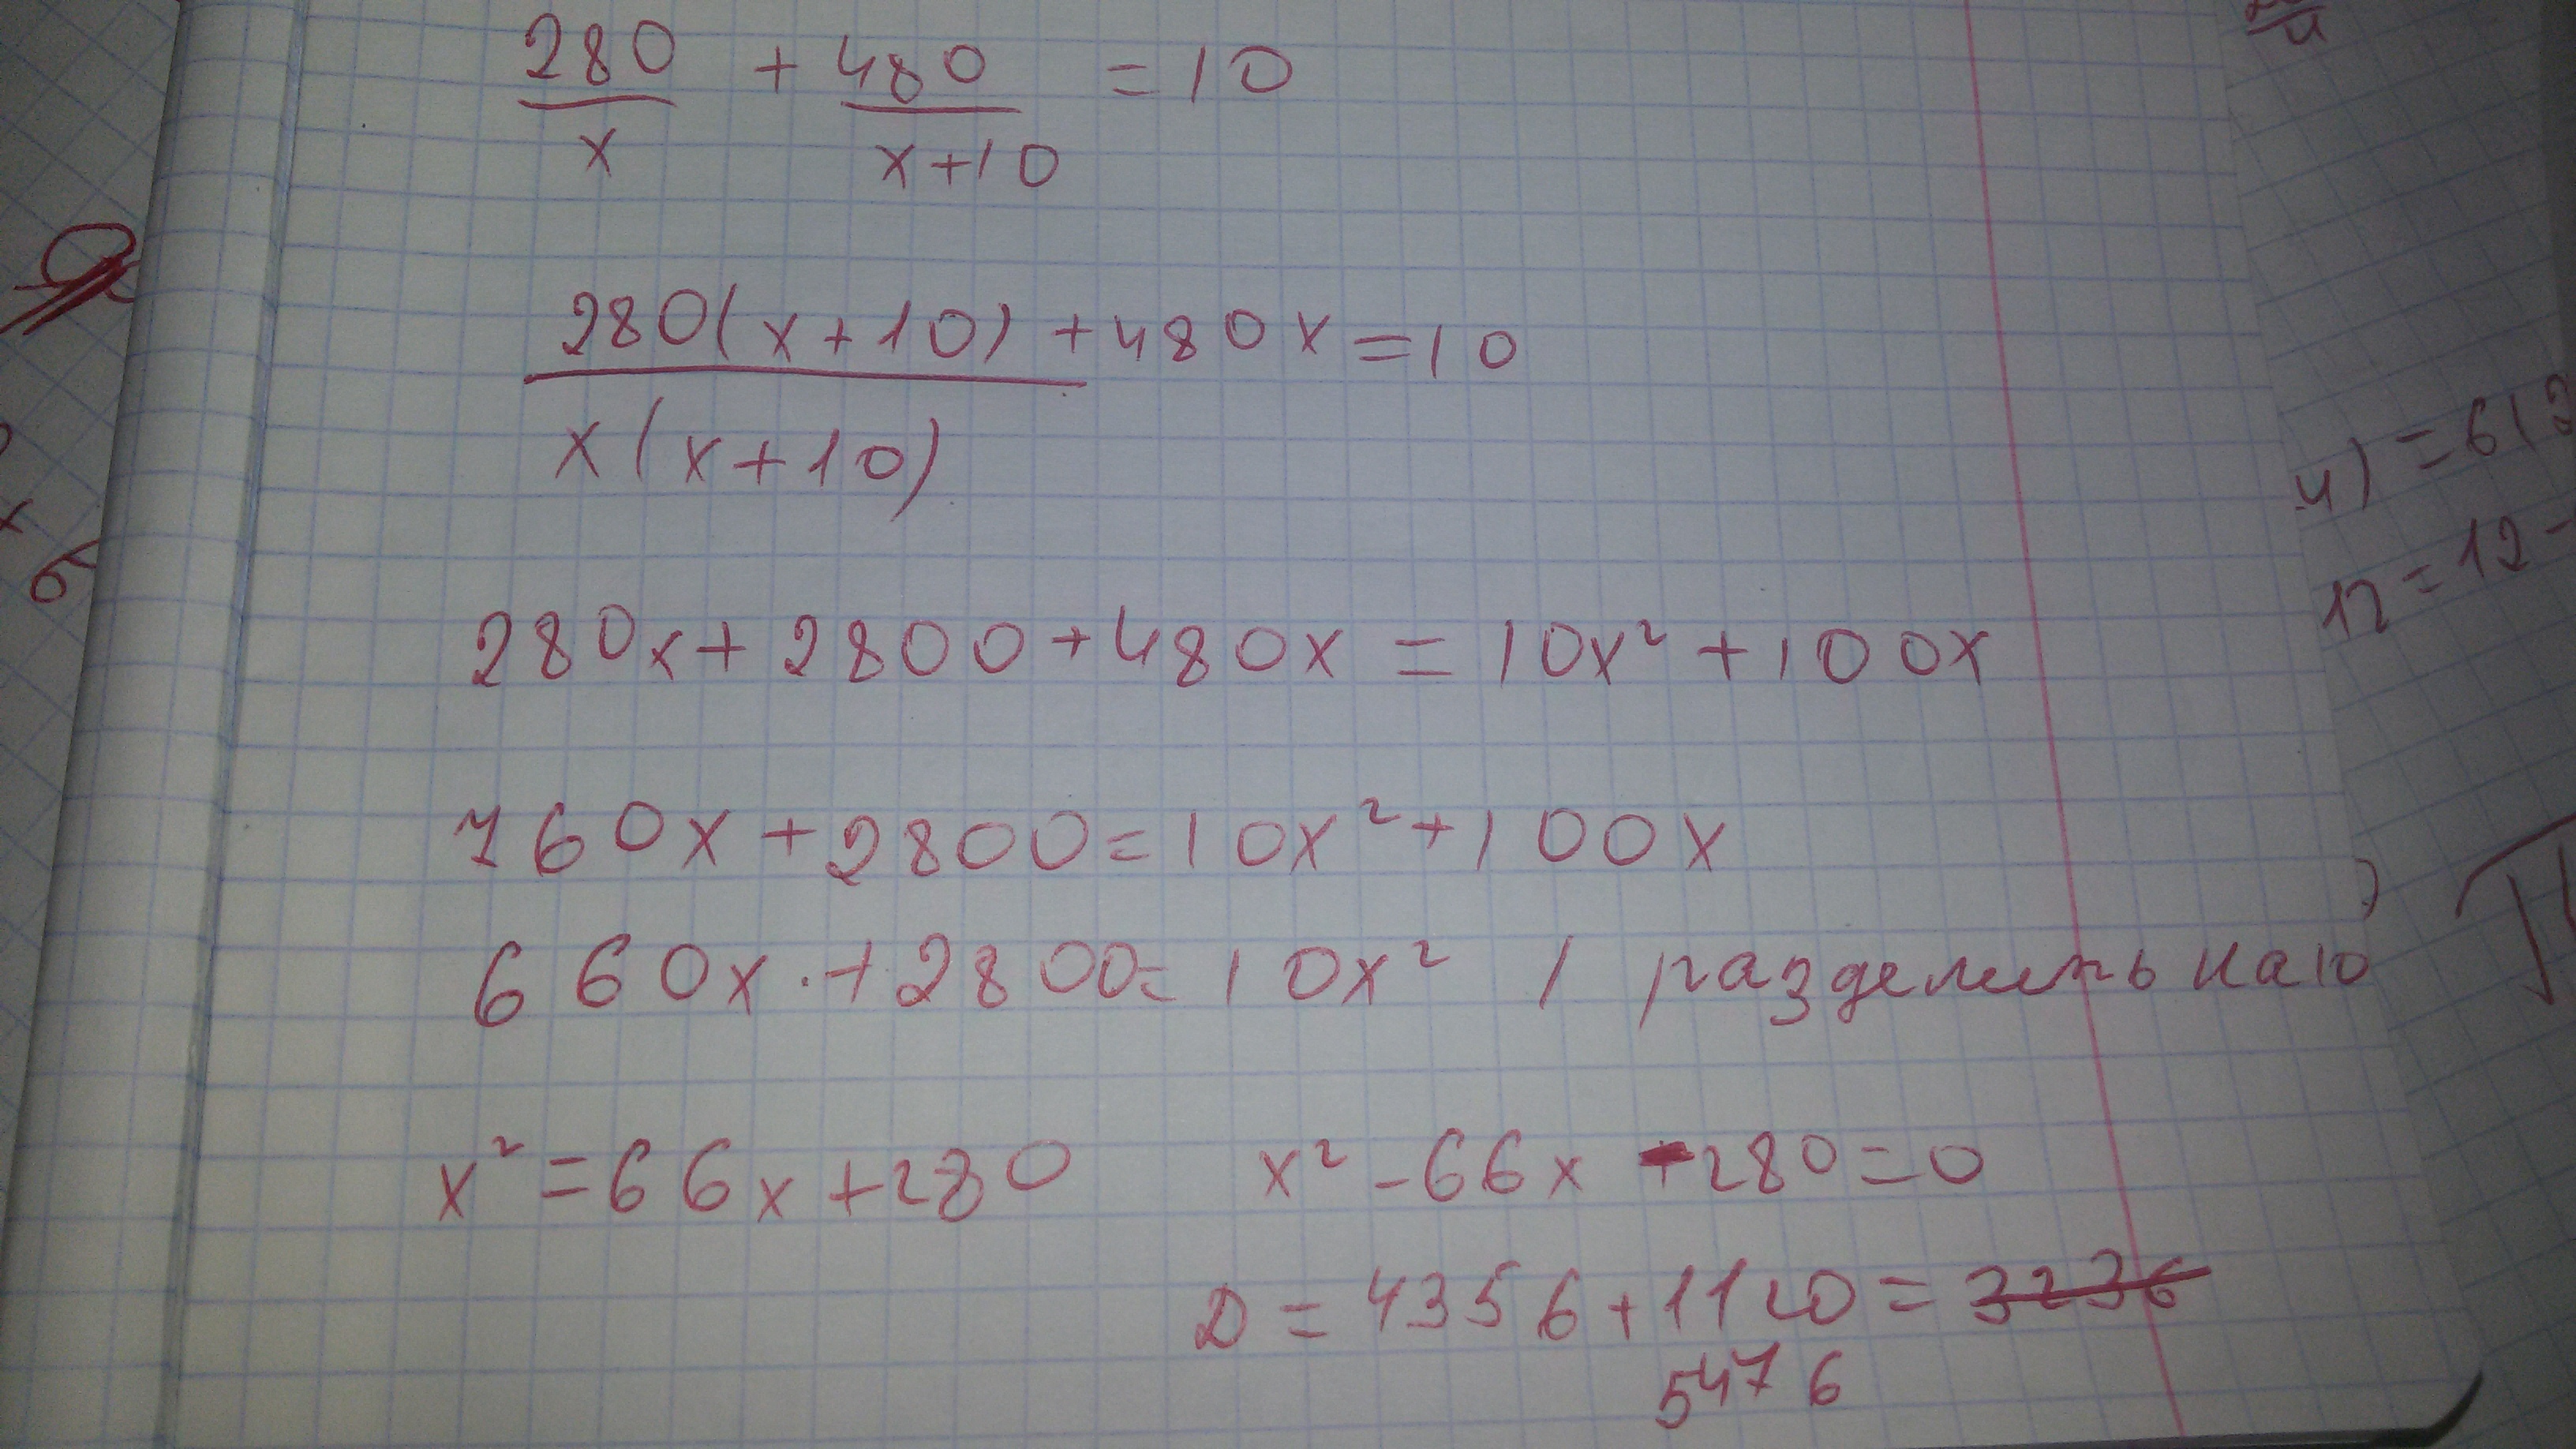 280/x + 480/x+10 = 10
280(x+10)+480x/x(x+10) = 10
280x+2800+480x = 10x²+100x
760x+2800=10x²+100x
660x+2800=10x² / разделить на 10
x²=66x+280 x²-66x-280=0
D=4356+1120=3236
5476
4) = 6(3
12 = 12 -